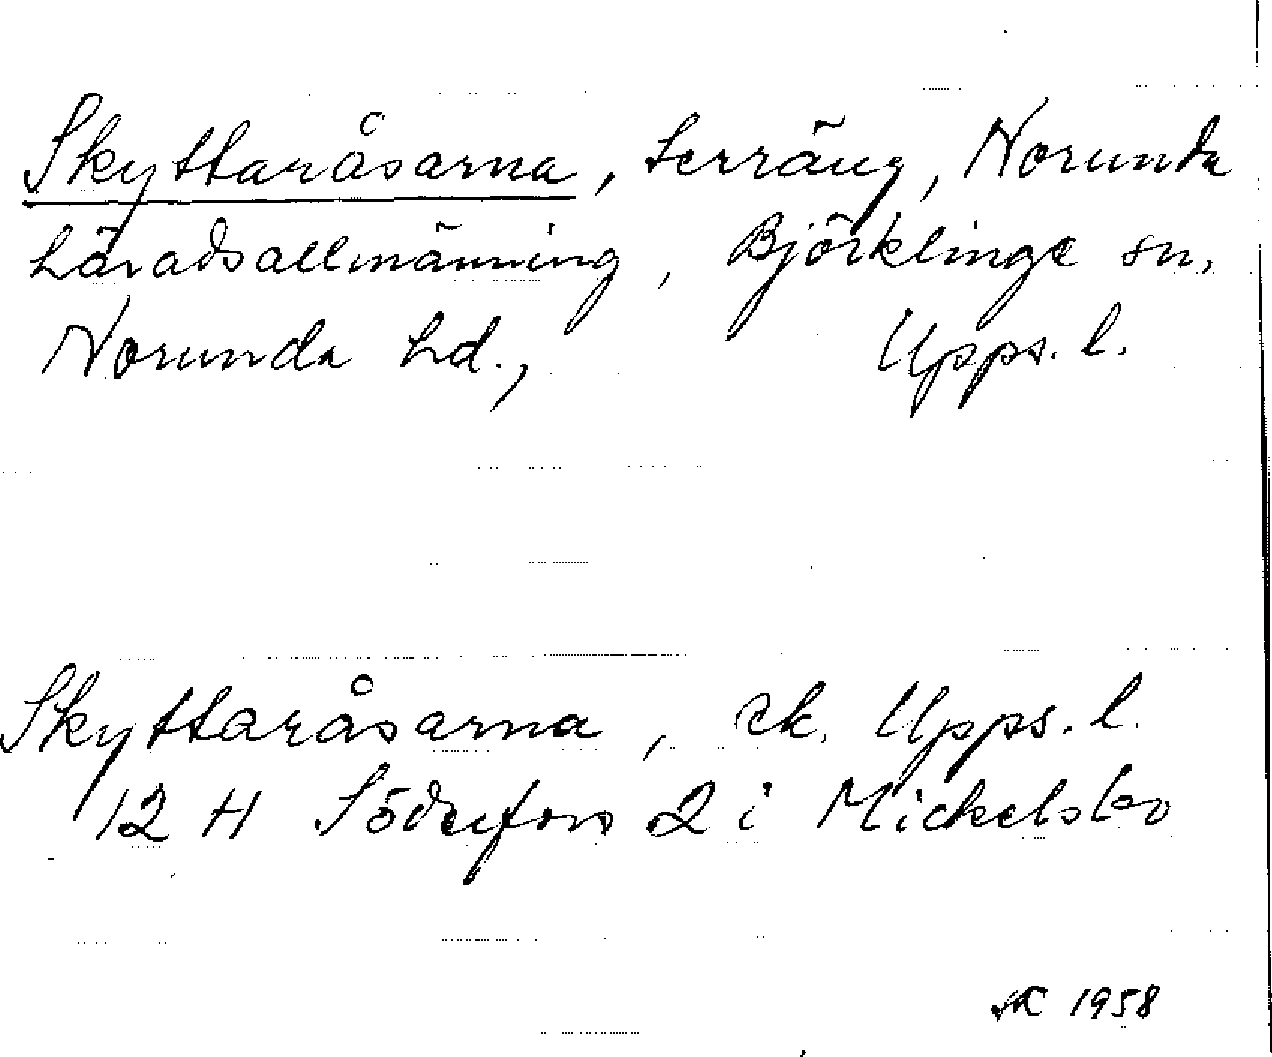 Skyttaråsarna, terräng, Norunda
häradsallmänning, Björklinge sn,
Norunda hd., Upps. l.
Skyttaråsarna, ek. Upps. l.
12 H Söderfors 2 i Mickelsbo
1958